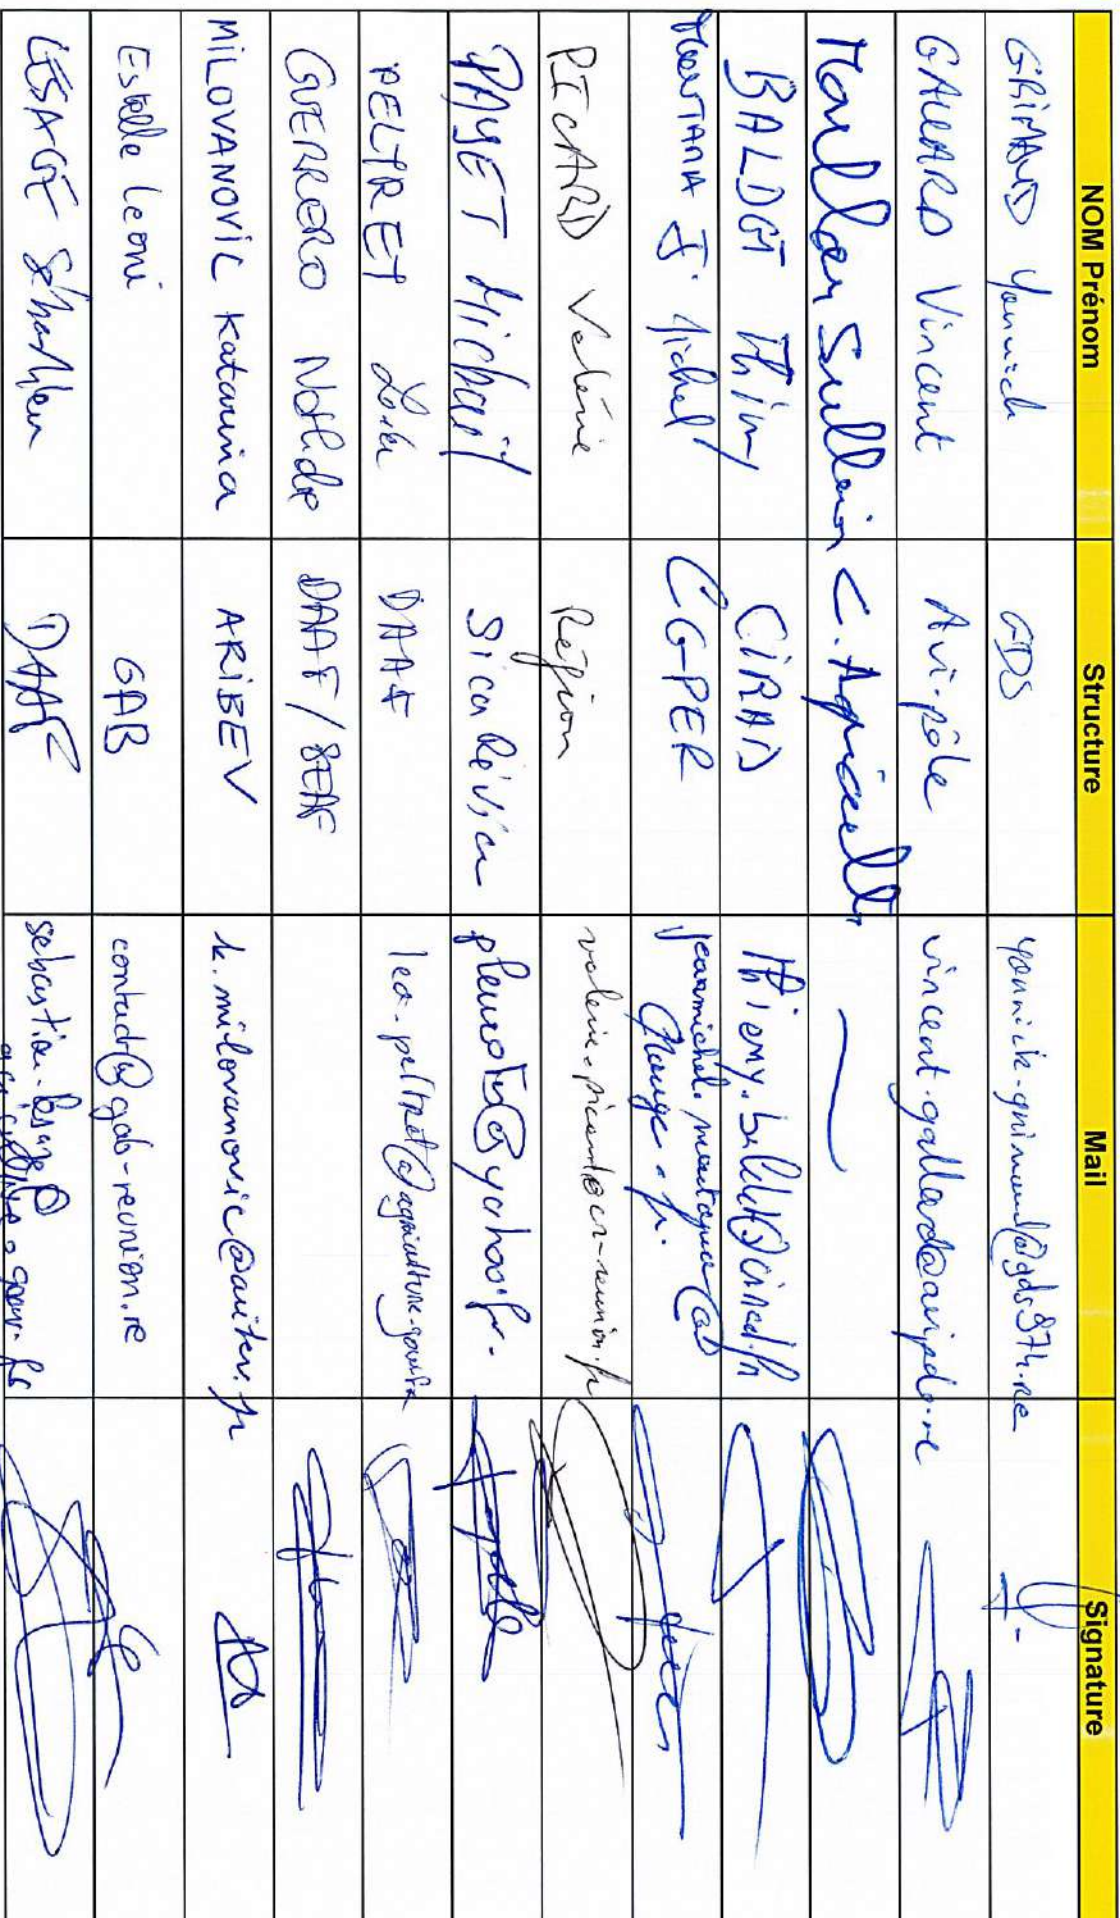 NOM Prénom Structure Mail Signature
GRIMAUD Yannick GDS yannick.grimaud@gds974.re
GALLARD Vincent Avi-pôle vincent.gallard@avipole.re
C. Agricult
BALDET Thierry CIRAD thierry.baldet@cirad.fr
J. Michel CGPER jeanmichel.
@orange.fr
PICARD Valérie Région valerie.picard@cr-reunion.fr
PAYET Sica Révia @yahoo.fr
PELTRET Léa DAAF lea.peltret@agriculture.gouv.fr
GUERRERO DAAF/SEAF
MILOVANOVIC Katarina ARIBEV k.milovanovic@
Estelle Leoni GAB contact@gab-reunion.re
LESAGE Sébastien DAAF sebastien.lesage@
gouv.fr